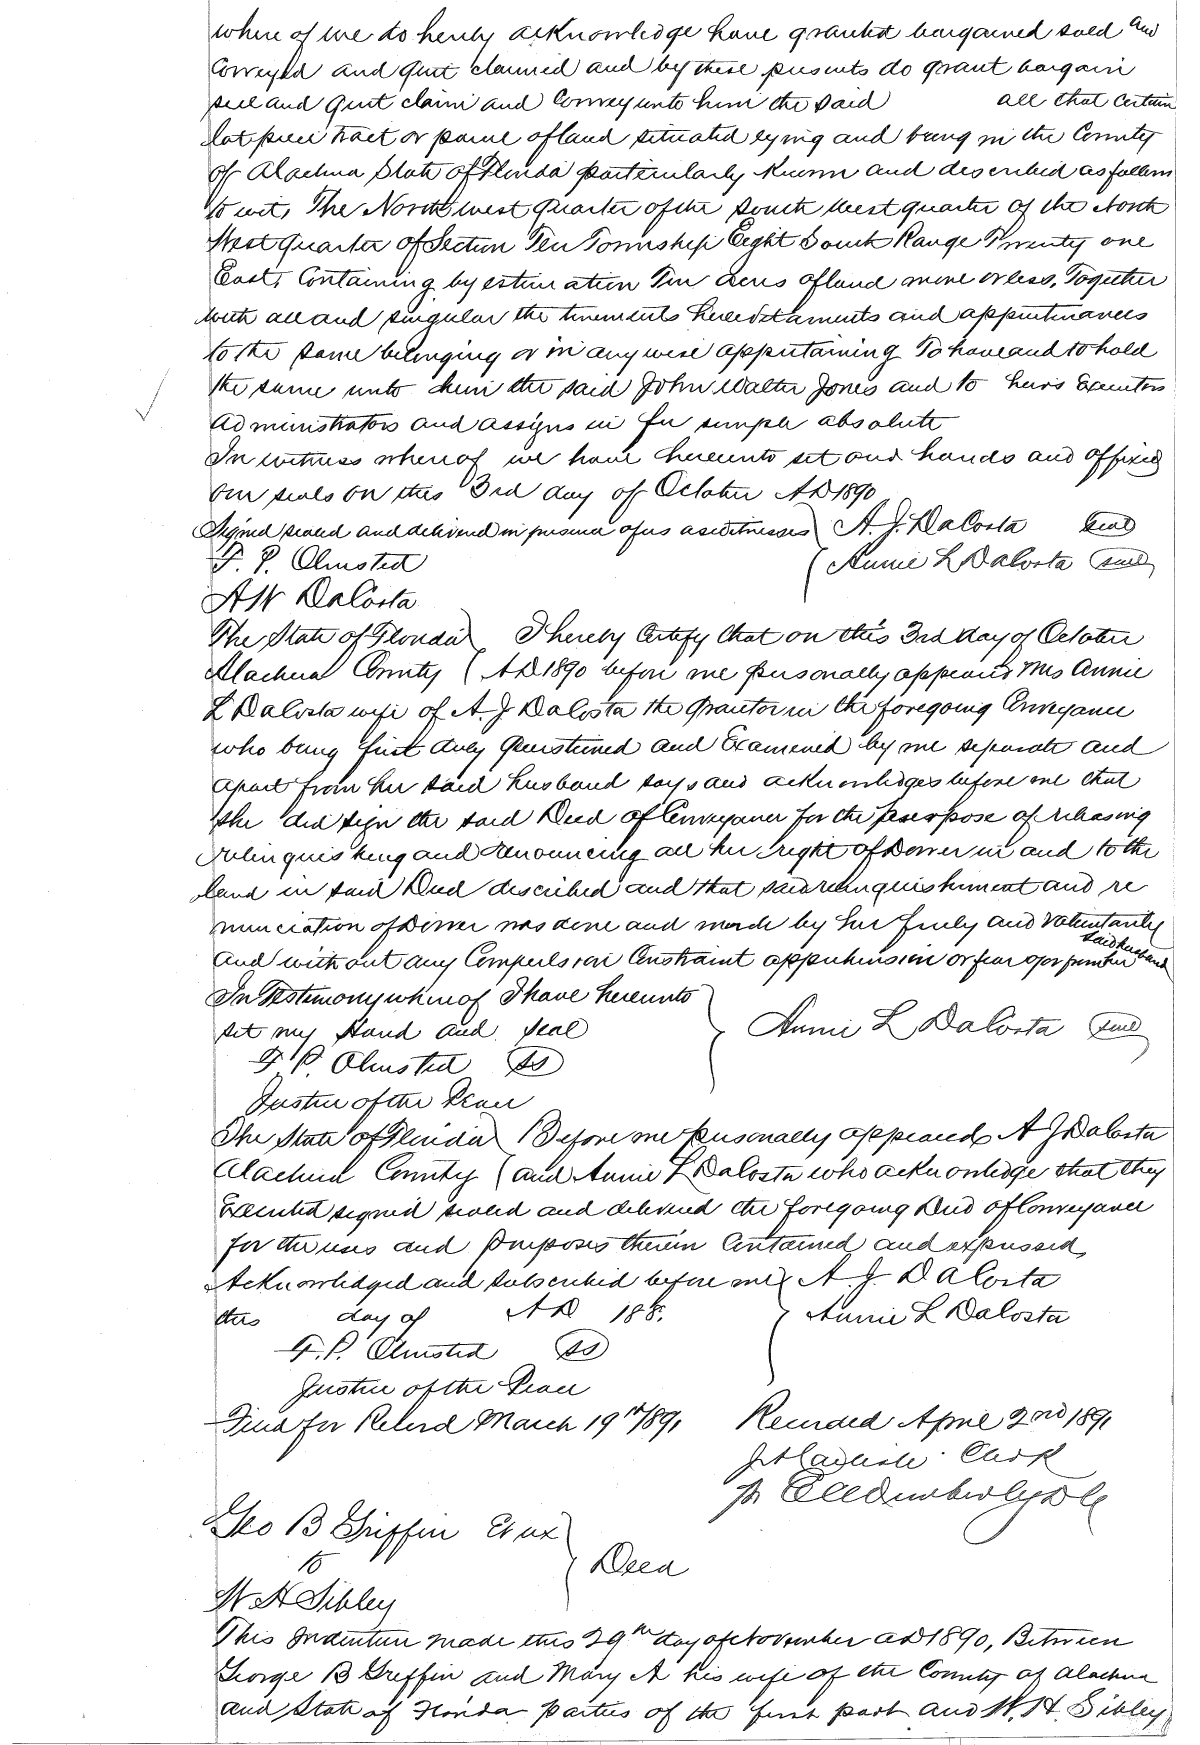 where of we do hereby acknowledge have granted bargained sold and
Conveyed and quit claimed and by these presents do grant bargain
sell and quit claim and Convey unto him the said all that certain
lot piece tract or parcel of land situated lying and being in the County
of Alachua State of Florida particularly known and described as follows
to wit, The North west quarter of the South West quarter of the North
West quarter of Section Ten Township Eight South Range Twenty one
East, Containing by estimation Ten acres of land more or less, Together
with all and singular the tenements hereditaments and appurtenances
to the same belonging or in any wise appertaining To have and to hold
the same unto him the said John Walter Jones and to heirs Executors
administrators and assigns in fee simple absolute
In witness whereof we have hereunto set our hands and affixed
our seals on this 3rd day of October AD 1890
Signed sealed and delivered in presence of us as witnesses A. J. DaCosta seal
F. P. Olmsted Annie L DaCosta seal
A W DaCosta
The State of Florida I hereby Certify that on this 3rd day of October
Alachua County AD 1890 before me personally appeared Mrs Annie
L DaCosta wife of A. J DaCosta the grantor in the foregoing Conveyance
who being first duly questioned and Examined by me separate and
apart from her said husband says and acknowledges before me that
she did sign the said Deed of Conveyance for the purpose of releasing
relinquishing and renouncing all her right of Dower in and to the
land in said Deed described and that said relinquishment and re
nunciation of Dower was done and made by her freely and Voluntarily
and without any Compulsion Constraint apprehension or fear of or from her said husband
In Testimony whereof I have hereunto
set my Hand and seal Annie L DaCosta seal
F. P. Olmsted SS
Justice of the Peace
The State of Florida Before me personally appeared A J DaCosta
Alachua County and Annie L DaCosta who acknowledge that they
Executed signed sealed and delivered the foregoing Deed of Conveyance
for the uses and purposes therein Contained and expressed,
Acknowledged and subscribed before me A. J. DaCosta
this day of AD 188. Annie L DaCosta
F. P. Olmsted SS
Justice of the Peace
Filed for Record March 19th 1891 Recorded April 2nd 1891
Clerk
Geo B Griffin Et ux
to Deed
W H Sibley
This Indenture made this 29th day of November AD 1890, Between
George B Griffin and Mary A his wife of the County of Alachua
and State of Florida parties of the first part and W. H. Sibley